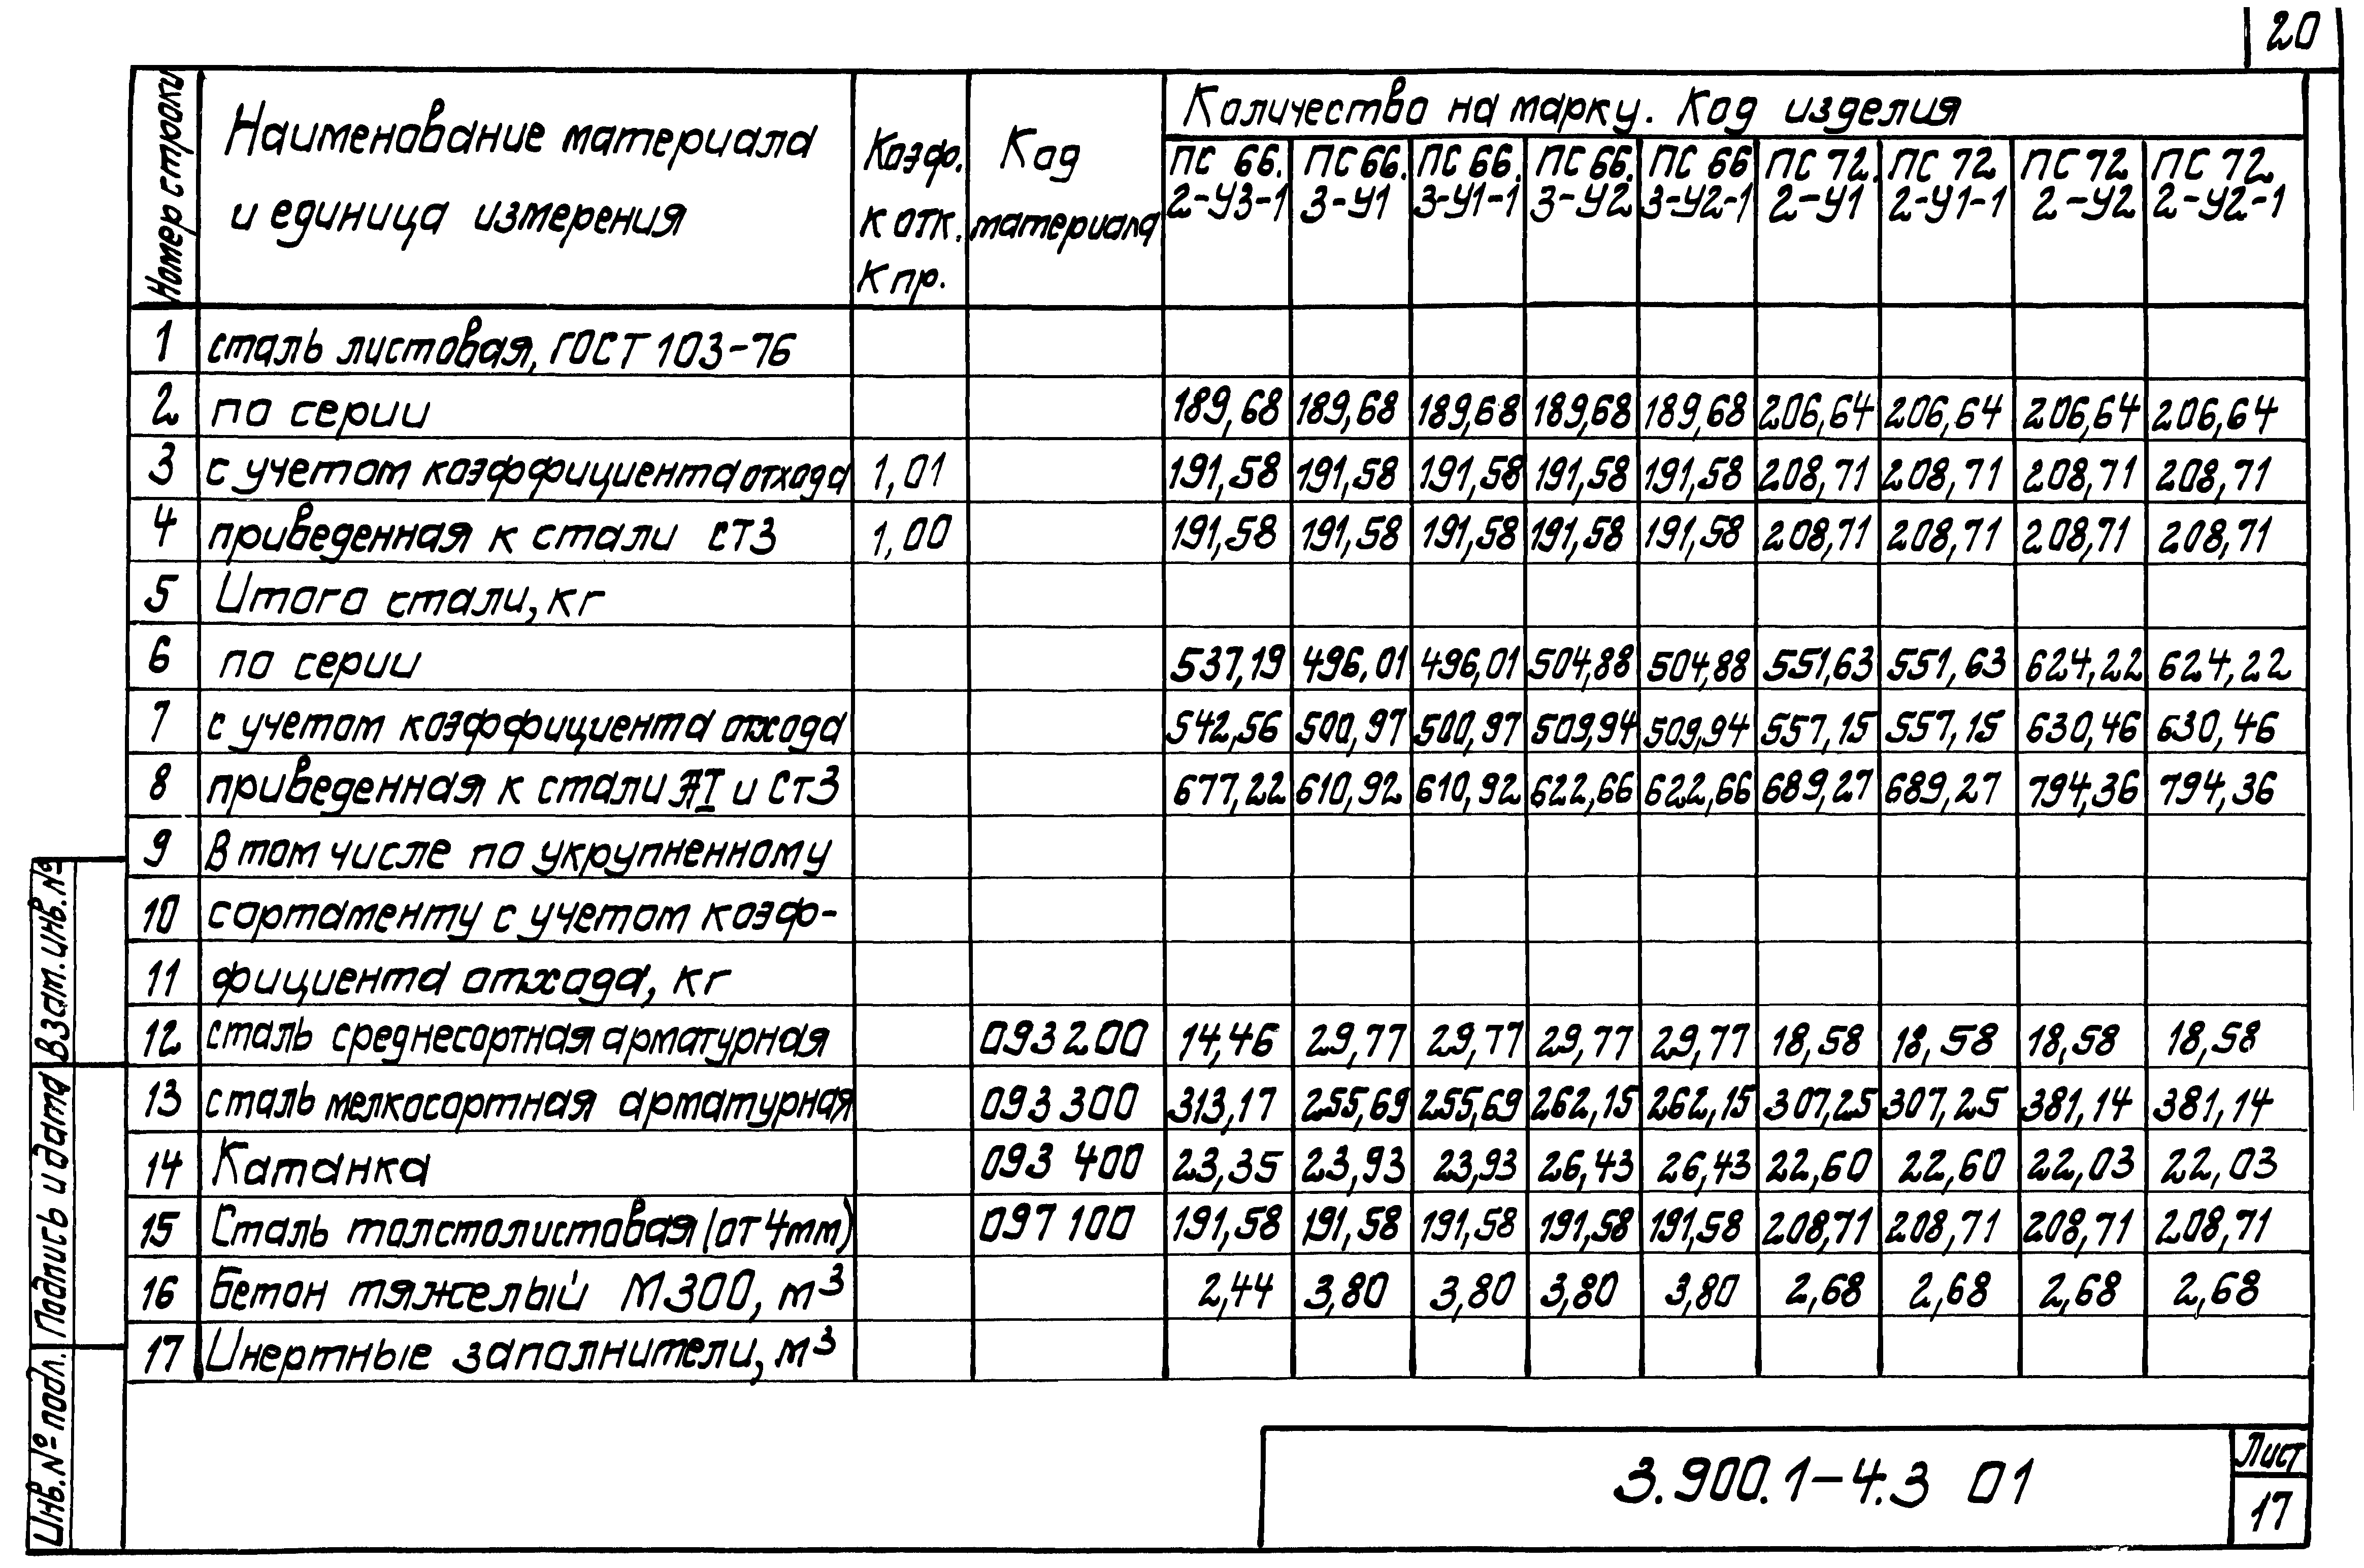 20
Номер строки
Наименование материала
и единица измерения
Коэф.
К отк.
К пр.
Код
материала
Количество на марку. Код изделия
ПС 66.
2-У3-1
ПС 66.
3-У1
ПС 66.
3-У1-1
ПС 66.
3-У2
ПС 66
3-У2-1
ПС 72.
2-У1
ПС 72
2-У1-1
ПС 72
2-У2
ПС 72.
2-У2-1
1 сталь листовая, ГОСТ 103-76
2 по серии 189,68 189,68 189,68 189,68 189,68 206,64 206,64 206,64 206,64
3 с учетом коэффициента отхода 1,01 191,58 191,58 191,58 191,58 191,58 208,71 208,71 208,71 208,71
4 приведенная к стали СТ3 1,00 191,58 191,58 191,58 191,58 191,58 208,71 208,71 208,71 208,71
5 Итого стали, кг
6 по серии 537,19 496,01 496,01 504,88 504,88 551,63 551,63 624,22 624,22
7 с учетом коэффициента отхода 542,56 500,97 500,97 509,94 509,94 557,15 557,15 630,46 630,46
8 приведенная к стали АI и Ст3 677,22 610,92 610,92 622,66 622,66 689,27 689,27 794,36 794,36
9 В том числе по укрупненному
10 сортаменту с учетом коэф-
11 фициента отхода, кг
12 сталь среднесортная арматурная 093200 14,46 29,77 29,77 29,77 29,77 18,58 18,58 18,58 18,58
13 сталь мелкосортная арматурная 093300 313,17 255,69 255,69 262,15 262,15 307,25 307,25 381,14 381,14
14 Катанка 093 400 23,35 23,93 23,93 26,43 26,43 22,60 22,60 22,03 22,03
15 Сталь толстолистовая (от 4мм) 097 100 191,58 191,58 191,58 191,58 191,58 208,71 208,71 208,71 208,71
16 Бетон тяжелый М300, м³ 2,44 3,80 3,80 3,80 3,80 2,68 2,68 2,68 2,68
17 Инертные заполнители, м³
Взам. инв. №
Подпись и дата
Инв. № подл.
3.900.1-4.3 01
Лист
17